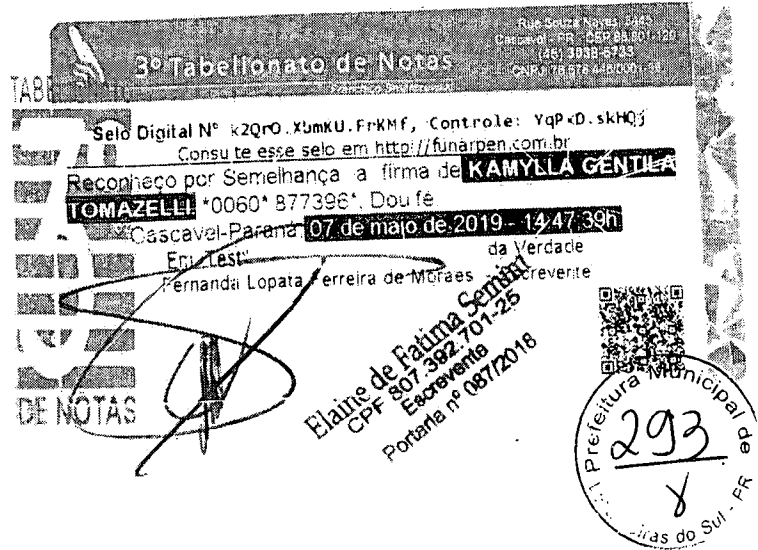 3º Tabelionato de Notas
Rua Souza Naves,
Cascavel - PR - CEP 85.801-120
(45) 3038-6733
Selo Digital Nº k2QrO.XUmKU.FrKMf, Controle: YqPxD.skHQj
Consulte esse selo em http://funarpen.com.br
Reconheço por Semelhança a firma de KAMYLLA GENTILA
TOMAZELLI *0060* 877396*. Dou fé.
Cascavel-Paraná, 07 de maio de 2019 - 14:47:39h
Em Test° da Verdade
Fernanda Lopata Ferreira de Moraes Escrevente
Elaine de Fatima
CPF 807.392.701-25
Escrevente
Portaria nº 087/2018
DE NOTAS
Prefeitura Municipal de
293
iras do Sul - PR